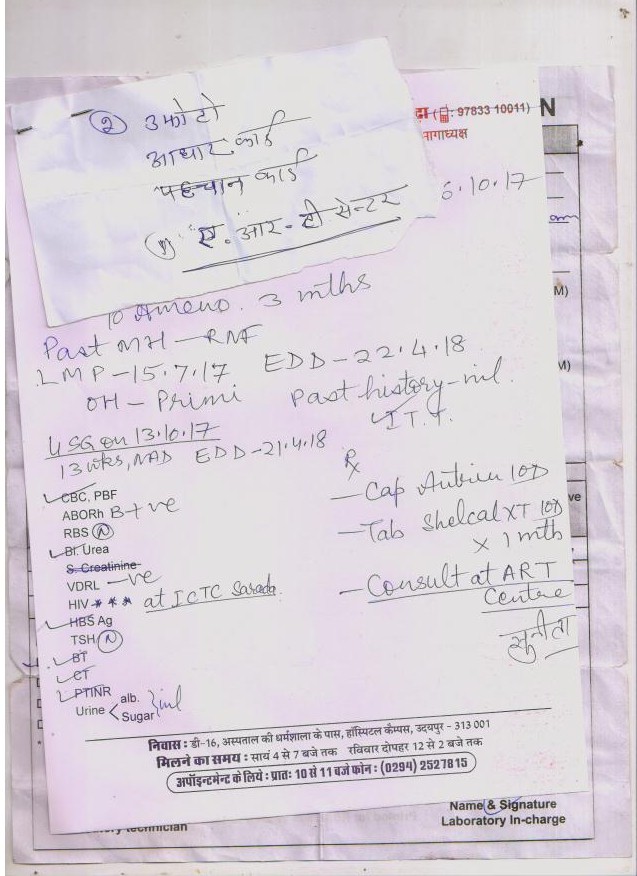 ② 3 फोटो
आधार कार्ड
पहचान कार्ड
(1) ए. आर. टी सेन्टर
: 97833 10011)
N
नागाध्यक्ष
6.10.17
M)
M)
Ameno. 3 mths
Past MH - RNF
LMP - 15.7.17 EDD - 22.4.18
OH - Primi Past history - nil.
I T.T.
USG on 13.10.17
13 wks, NAD EDD - 21.4.18
Rx
CBC, PBF
- Cap 10D
ABORh B+ve
RBS N
- Tab Shelcal XT 10D
Bl. Urea
x 1 mth
S. Creatinine
VDRL -ve
- Consult at ART
HIV * * * at ICTC Sarada.
Centre
HBS Ag
TSH N
सुनीता
BT
CT
PTINR
Urine < alb. } nil
Sugar
निवास : डी-16, अस्पताल की धर्मशाला के पास, हॉस्पिटल कैम्पस, उदयपुर - 313 001
मिलने का समय : सायं 4 से 7 बजे तक रविवार दोपहर 12 से 2 बजे तक
अपॉइन्टमेन्ट के लिये : प्रातः 10 से 11 बजे फोन : (0294) 2527815
Name & Signature
Laboratory In-charge